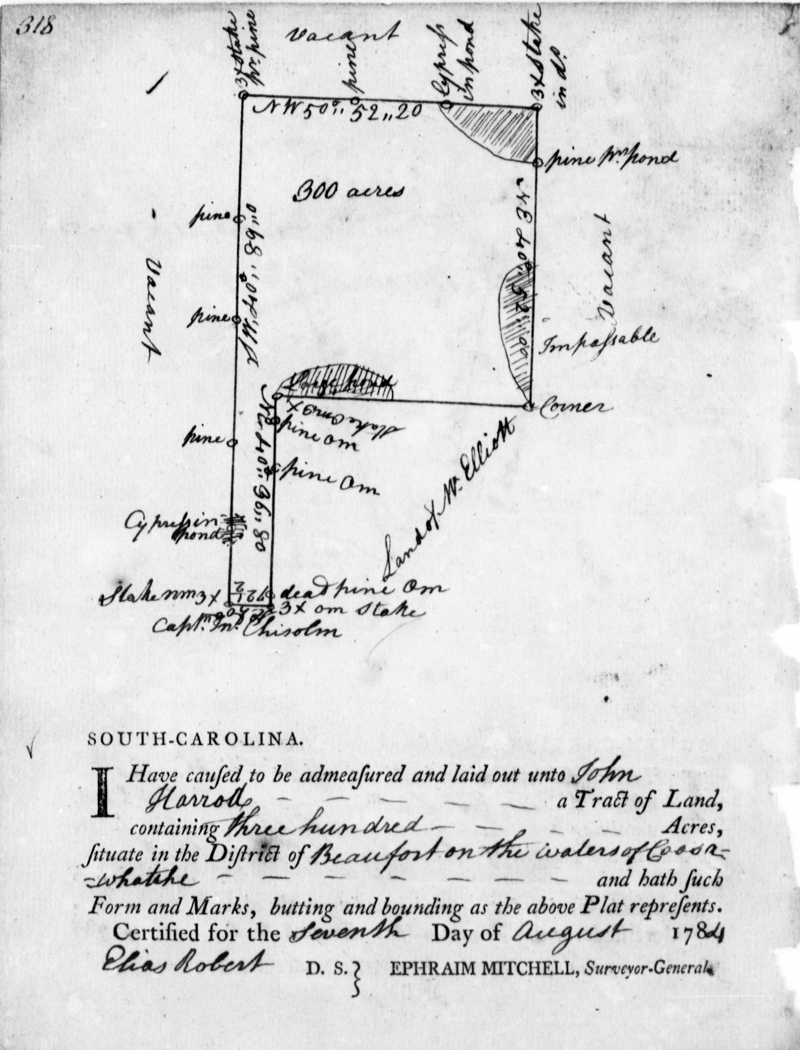 318
3X Stake
Wr. pine
Vacant
pine
Cypreſs
In pond
3X Stake
in do.
NW 50°,, 52,,20
pine Wr. pond
300 acres
pine
Vacant
NE 40°,, 52,,00
Vacant
pine
Impaſsable
Large pond
Corner
Stake Om 3X
pine om
pine
NE 40°,, 36,,80
pine Om
Land of Wm. Elliott
Cypreſs in
pond
Stake nm 3X
dead pine Om
3X om Stake
Capt. Jno. Chisolm
SOUTH-CAROLINA.
I Have cauſed to be admeaſured and laid out unto John
Harrod a Tract of Land,
containing three hundred Acres,
ſituate in the Diſtrict of Beaufort on the waters of Coosa-
whatche and hath ſuch
Form and Marks, butting and bounding as the above Plat repreſents.
Certified for the Seventh Day of August 1784
Elias Robert D. S. } EPHRAIM MITCHELL, Surveyor-General.